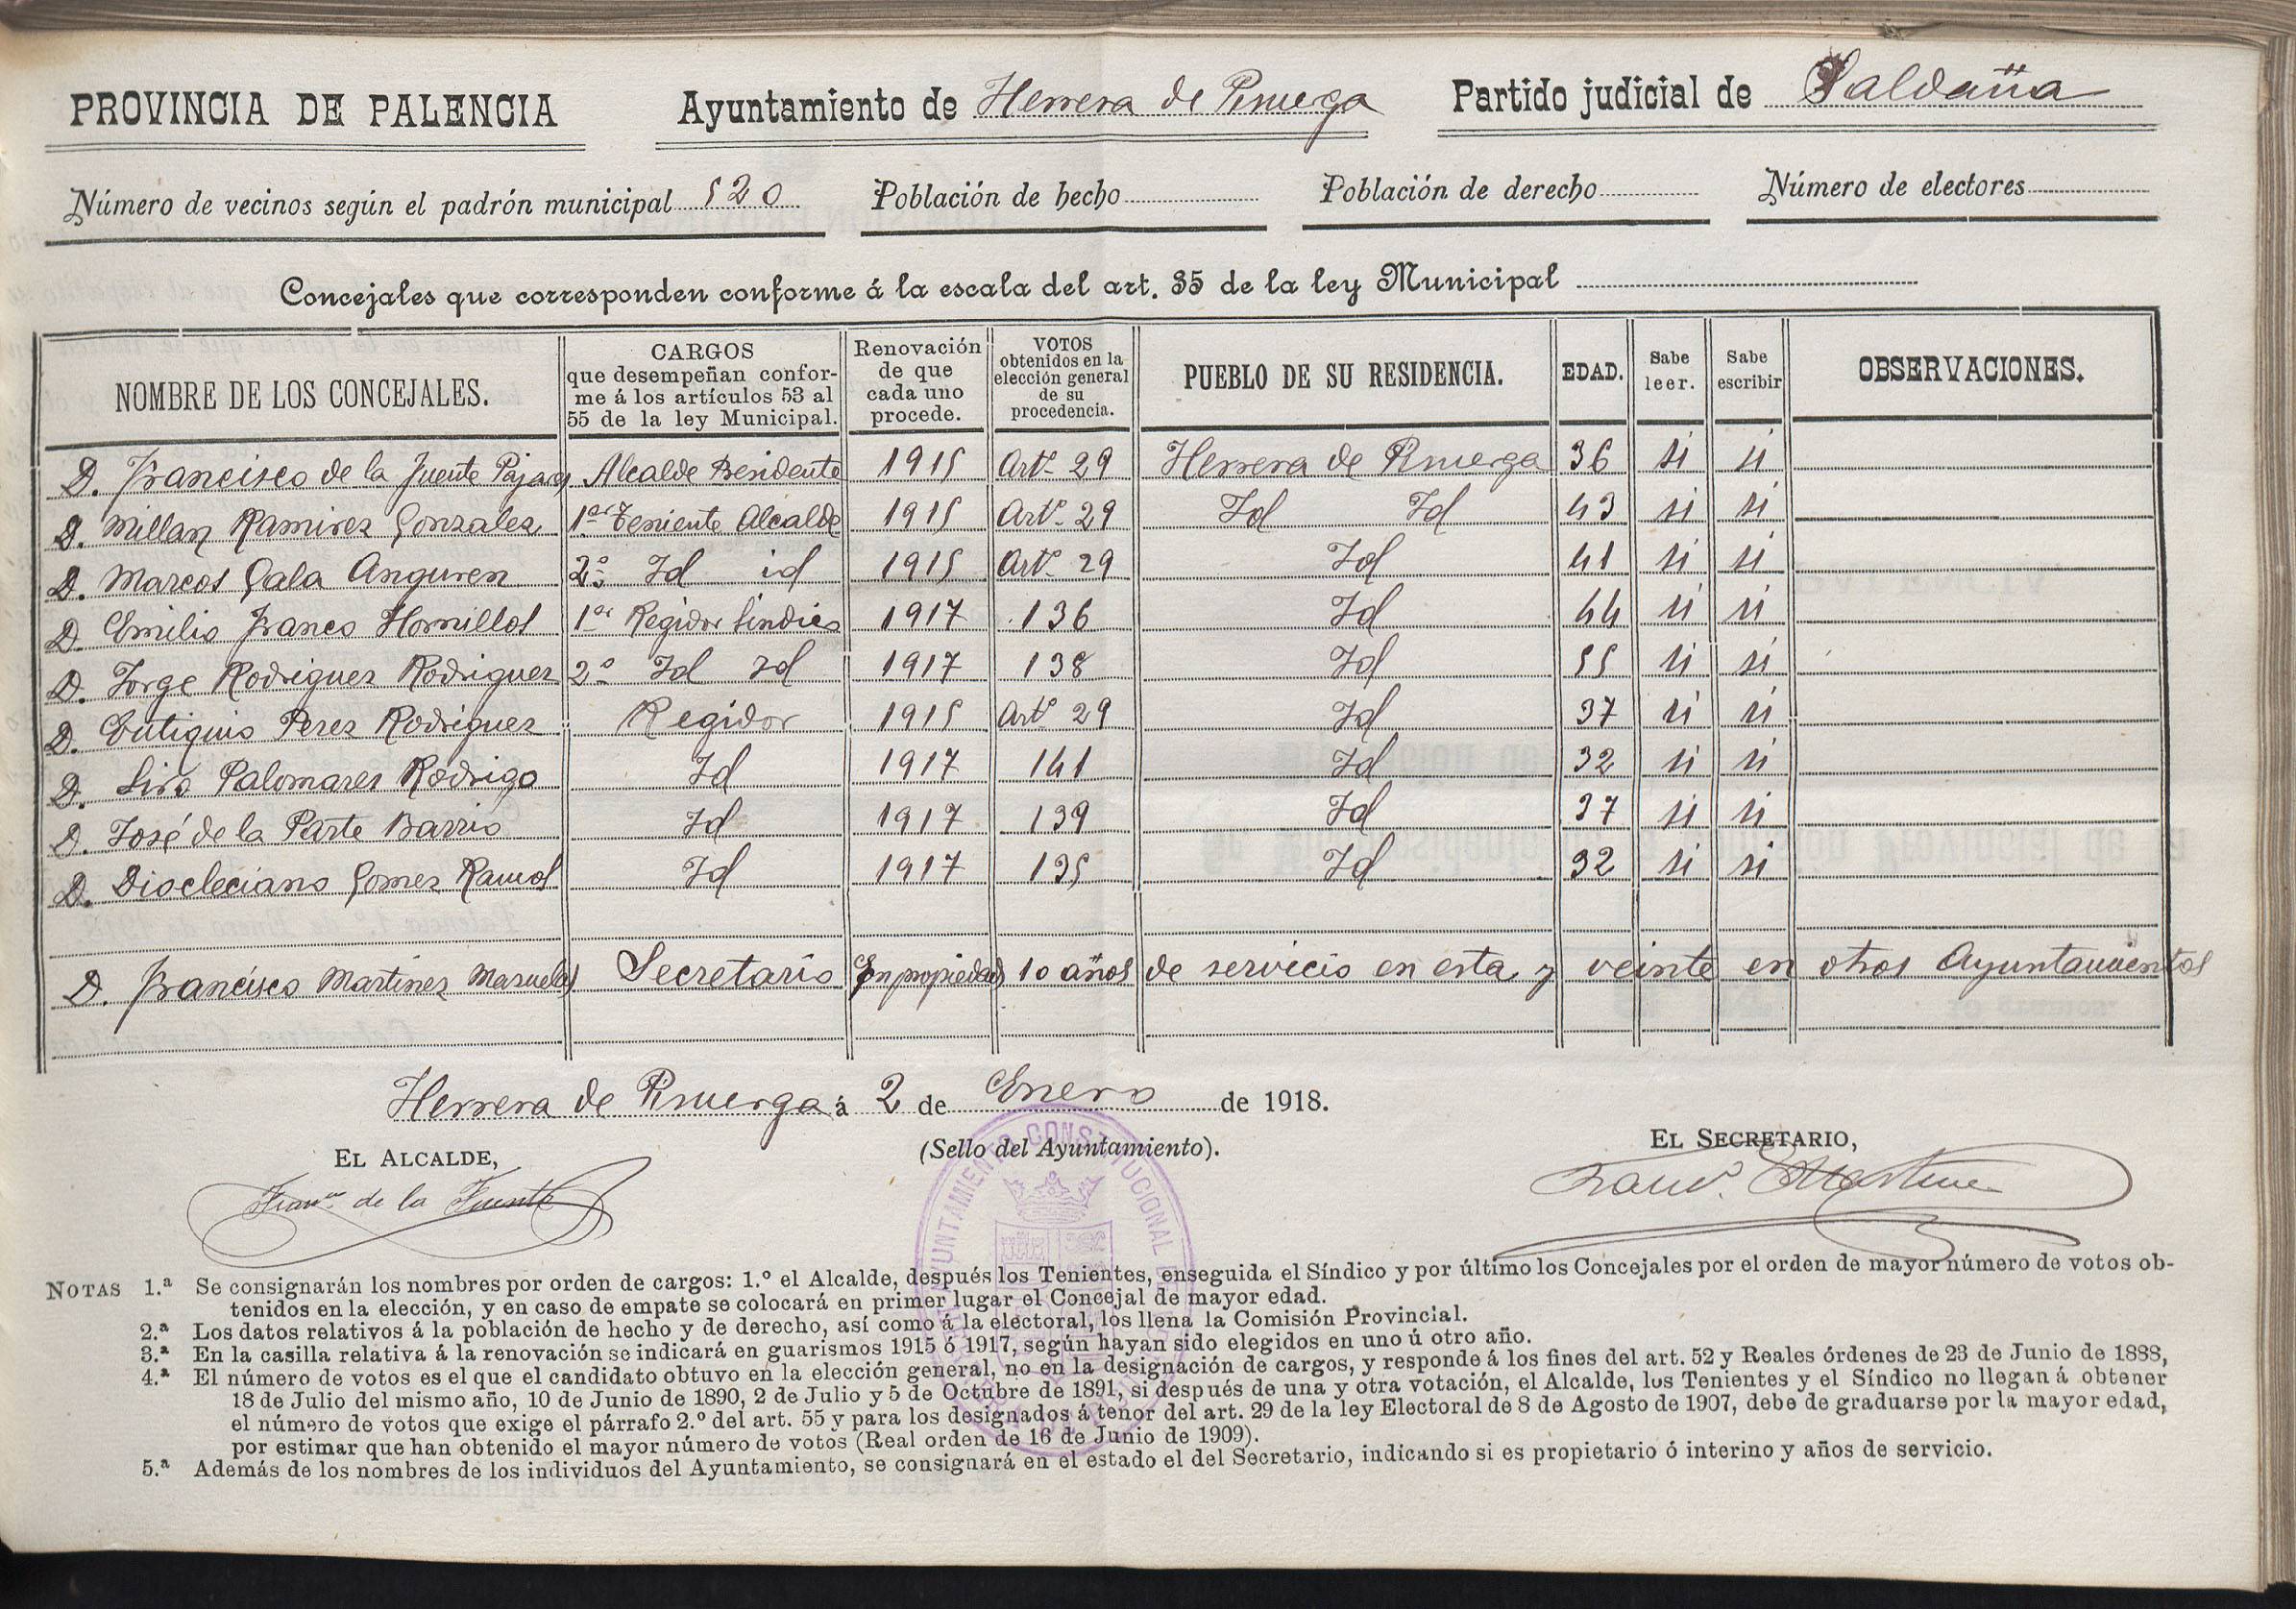 PROVINCIA DE PALENCIA Ayuntamiento de Herrera de Pisuerga Partido judicial de Saldaña
Número de vecinos según el padrón municipal 520 Población de hecho Población de derecho Número de electores
Concejales que corresponden conforme á la escala del art. 35 de la ley Municipal
NOMBRE DE LOS CONCEJALES. CARGOS que desempeñan confor-me á los artículos 53 al 55 de la ley Municipal. Renovación de que cada uno procede. VOTOS obtenidos en la elección general de su procedencia. PUEBLO DE SU RESIDENCIA. EDAD. Sabe leer. Sabe escribir OBSERVACIONES.
D. Francisco de la Fuente Pajares Alcalde Presidente 1915 Artº 29 Herrera de Pisuerga 36 si si
D. Millan Ramirez Gonzalez 1er Teniente Alcalde 1915 Artº 29 Id Id 43 si si
D. Marcos Gala Anguren 2º Id id 1915 Artº 29 Id 41 si si
D. Emilio Franco Hornillos 1er Regidor Sindico 1917 136 Id 44 si si
D. Jorge Rodriguez Rodriguez 2º Id Id 1917 138 Id 55 si si
D. Eutiquio Perez Rodriguez Regidor 1915 Artº 29 Id 37 si si
D. Siro Palomares Rodrigo Id 1917 141 Id 32 si si
D. José de la Parte Barrio Id 1917 139 Id 37 si si
D. Diocleciano Gomez Ramos Id 1917 135 Id 32 si si
D. Francisco Martinez Mazuelas Secretario En propiedad 10 años de servicio en esta y veinte en otros Ayuntamientos
Herrera de Pisuerga á 2 de Enero de 1918.
EL ALCALDE, (Sello del Ayuntamiento). EL SECRETARIO,
Franco de la Fuente Franco. Martinez
AYUNTAMIENTO CONSTITUCIONAL DE
NOTAS 1.ª Se consignarán los nombres por orden de cargos: 1.º el Alcalde, después los Tenientes, enseguida el Síndico y por último los Concejales por el orden de mayor número de votos ob-
tenidos en la elección, y en caso de empate se colocará en primer lugar el Concejal de mayor edad.
2.ª Los datos relativos á la población de hecho y de derecho, así como á la electoral, los llena la Comisión Provincial.
3.ª En la casilla relativa á la renovación se indicará en guarismos 1915 ó 1917, según hayan sido elegidos en uno ú otro año.
4.ª El número de votos es el que el candidato obtuvo en la elección general, no en la designación de cargos, y responde á los fines del art. 52 y Reales órdenes de 23 de Junio de 1888,
18 de Julio del mismo año, 10 de Junio de 1890, 2 de Julio y 5 de Octubre de 1891, si después de una y otra votación, el Alcalde, los Tenientes y el Síndico no llegan á obtener
el número de votos que exige el párrafo 2.º del art. 55 y para los designados á tenor del art. 29 de la ley Electoral de 8 de Agosto de 1907, debe de graduarse por la mayor edad,
por estimar que han obtenido el mayor número de votos (Real orden de 16 de Junio de 1909).
5.ª Además de los nombres de los individuos del Ayuntamiento, se consignará en el estado el del Secretario, indicando si es propietario ó interino y años de servicio.